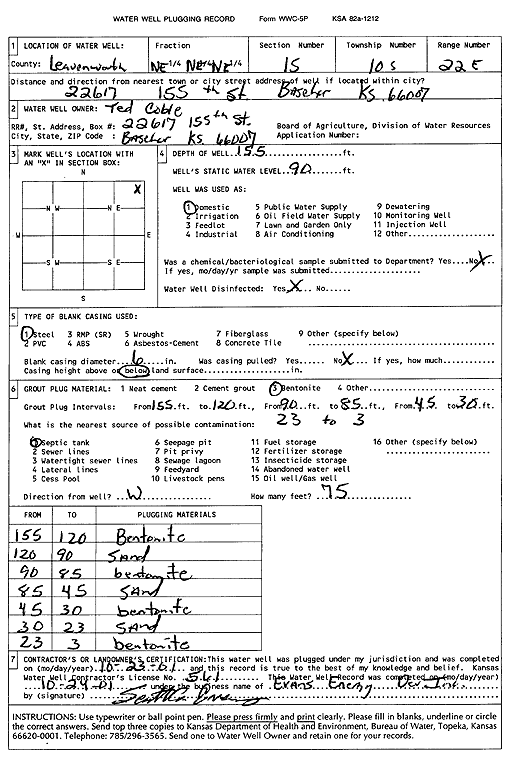 WATER WELL PLUGGING RECORD Form WWC-5P KSA 82a-1212
1 LOCATION OF WATER WELL: Fraction Section Number Township Number Range Number
County: Leavenworth NE 1/4 NE 1/4 NE 1/4 15 10 S 22 E
Distance and direction from nearest town or city street address of well if located within city?
22617 155th St Basehor KS. 66007
2 WATER WELL OWNER: Ted Coble
RR#, St. Address, Box #: 22617 155th St. Board of Agriculture, Division of Water Resources
City, State, ZIP Code : Basehor KS. 66007 Application Number:
3 MARK WELL'S LOCATION WITH AN "X" IN SECTION BOX:
N
X
N W N E
W E
S W S E
S
4 DEPTH OF WELL 155 ft.
WELL'S STATIC WATER LEVEL 90 ft.
WELL WAS USED AS:
1 Domestic 5 Public Water Supply 9 Dewatering
2 Irrigation 6 Oil Field Water Supply 10 Monitoring Well
3 Feedlot 7 Lawn and Garden Only 11 Injection Well
4 Industrial 8 Air Conditioning 12 Other
Was a chemical/bacteriological sample submitted to Department? Yes.... No X
If yes, mo/day/yr sample was submitted
Water Well Disinfected: Yes X No......
5 TYPE OF BLANK CASING USED:
1 Steel 3 RMP (SR) 5 Wrought 7 Fiberglass 9 Other (specify below)
2 PVC 4 ABS 6 Asbestos-Cement 8 Concrete Tile
Blank casing diameter 6 in. Was casing pulled? Yes...... No X If yes, how much
Casing height above or below land surface in.
6 GROUT PLUG MATERIAL: 1 Neat cement 2 Cement grout 3 Bentonite 4 Other
Grout Plug Intervals: From 155 ft. to 120 ft., From 90 ft. to 85 ft., From 45 to 30 ft.
23 to 3
What is the nearest source of possible contamination:
1 Septic tank 6 Seepage pit 11 Fuel storage 16 Other (specify below)
2 Sewer lines 7 Pit privy 12 Fertilizer storage
3 Watertight sewer lines 8 Sewage lagoon 13 Insecticide storage
4 Lateral lines 9 Feedyard 14 Abandoned water well
5 Cess Pool 10 Livestock pens 15 Oil well/Gas well
Direction from well? W How many feet? 75
FROM TO PLUGGING MATERIALS
155 120 Bentonite
120 90 Sand
90 85 bentonite
85 45 SAnd
45 30 bentonite
30 23 SAnd
23 3 bentonite
7 CONTRACTOR'S OR LANDOWNER'S CERTIFICATION: This water well was plugged under my jurisdiction and was completed
on (mo/day/year) 10-23-01 and this record is true to the best of my knowledge and belief. Kansas
Water Well Contractor's License No. 561 This Water Well Record was completed on (mo/day/year)
10-24-01 under the business name of Evans Energy Dev Inc.
by (signature)
INSTRUCTIONS: Use typewriter or ball point pen. Please press firmly and print clearly. Please fill in blanks, underline or circle
the correct answers. Send top three copies to Kansas Department of Health and Environment, Bureau of Water, Topeka, Kansas
66620-0001. Telephone: 785/296-3565. Send one to Water Well Owner and retain one for your records.